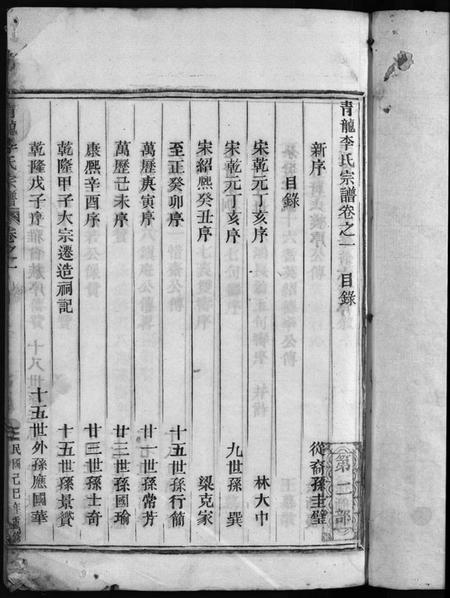 青龍李氏宗譜卷之一 目錄
第二部
新序 從裔孫圭璧
目錄
宋乾元丁亥序 林大中
宋乾元丁亥序 九世孫巽
宋紹熙癸丑序 梁克家
至正癸卯序 十五世孫行簡
萬歷庚寅序 廿一世孫常芳
萬歷己未序 廿二世孫國瑜
康熙辛酉序 廿三世孫士奇
乾隆甲子大宗遷造祠記 十五世孫景賛
乾隆戊子序 十五世外孫應國華
青龍李氏宗譜 卷之一
民國己巳年